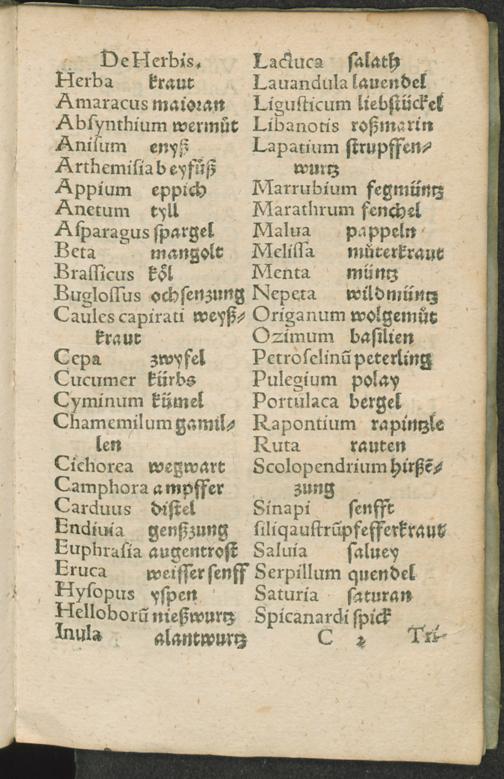 De Herbis.
Herba kraut
Amaracus maioran
Absynthium wermůt
Anisum enyß
Arthemisia beyfůß
Appium eppich
Anetum tyll
Asparagus spargel
Beta mangolt
Brassicus kől
Buglossus ochsenzung
Caules capitati weyß⸗
kraut
Cepa zwyfel
Cucumer kürbs
Cyminum kümel
Chamemilum gamil⸗
len
Cichorea wegwart
Camphora ampffer
Carduus distel
Endiuia genßzung
Euphrasia augentrost
Eruca weisser senff
Hysopus yspen
Helloborũ nießwurtz
Inula alantwurtz
Lactuca salath
Lauandula lauendel
Ligusticum liebstückel
Libanotis roßmarin
Lapatium strupffen⸗
wurtz
Marrubium fegmüntz
Marathrum fenchel
Malua pappeln
Melissa můterkraut
Menta müntz
Nepeta wildmüntz
Origanum wolgemůt
Ozimum basilien
Petroselinũ peterling
Pulegium polay
Portulaca bergel
Rapontium rapintzle
Ruta rauten
Scolopendrium hirßẽ⸗
zung
Sinapi senfft
siliqaustrũ pfefferkraut
Saluia saluey
Serpillum quendel
Saturia saturan
Spicanardi spick
C 2 Tri-